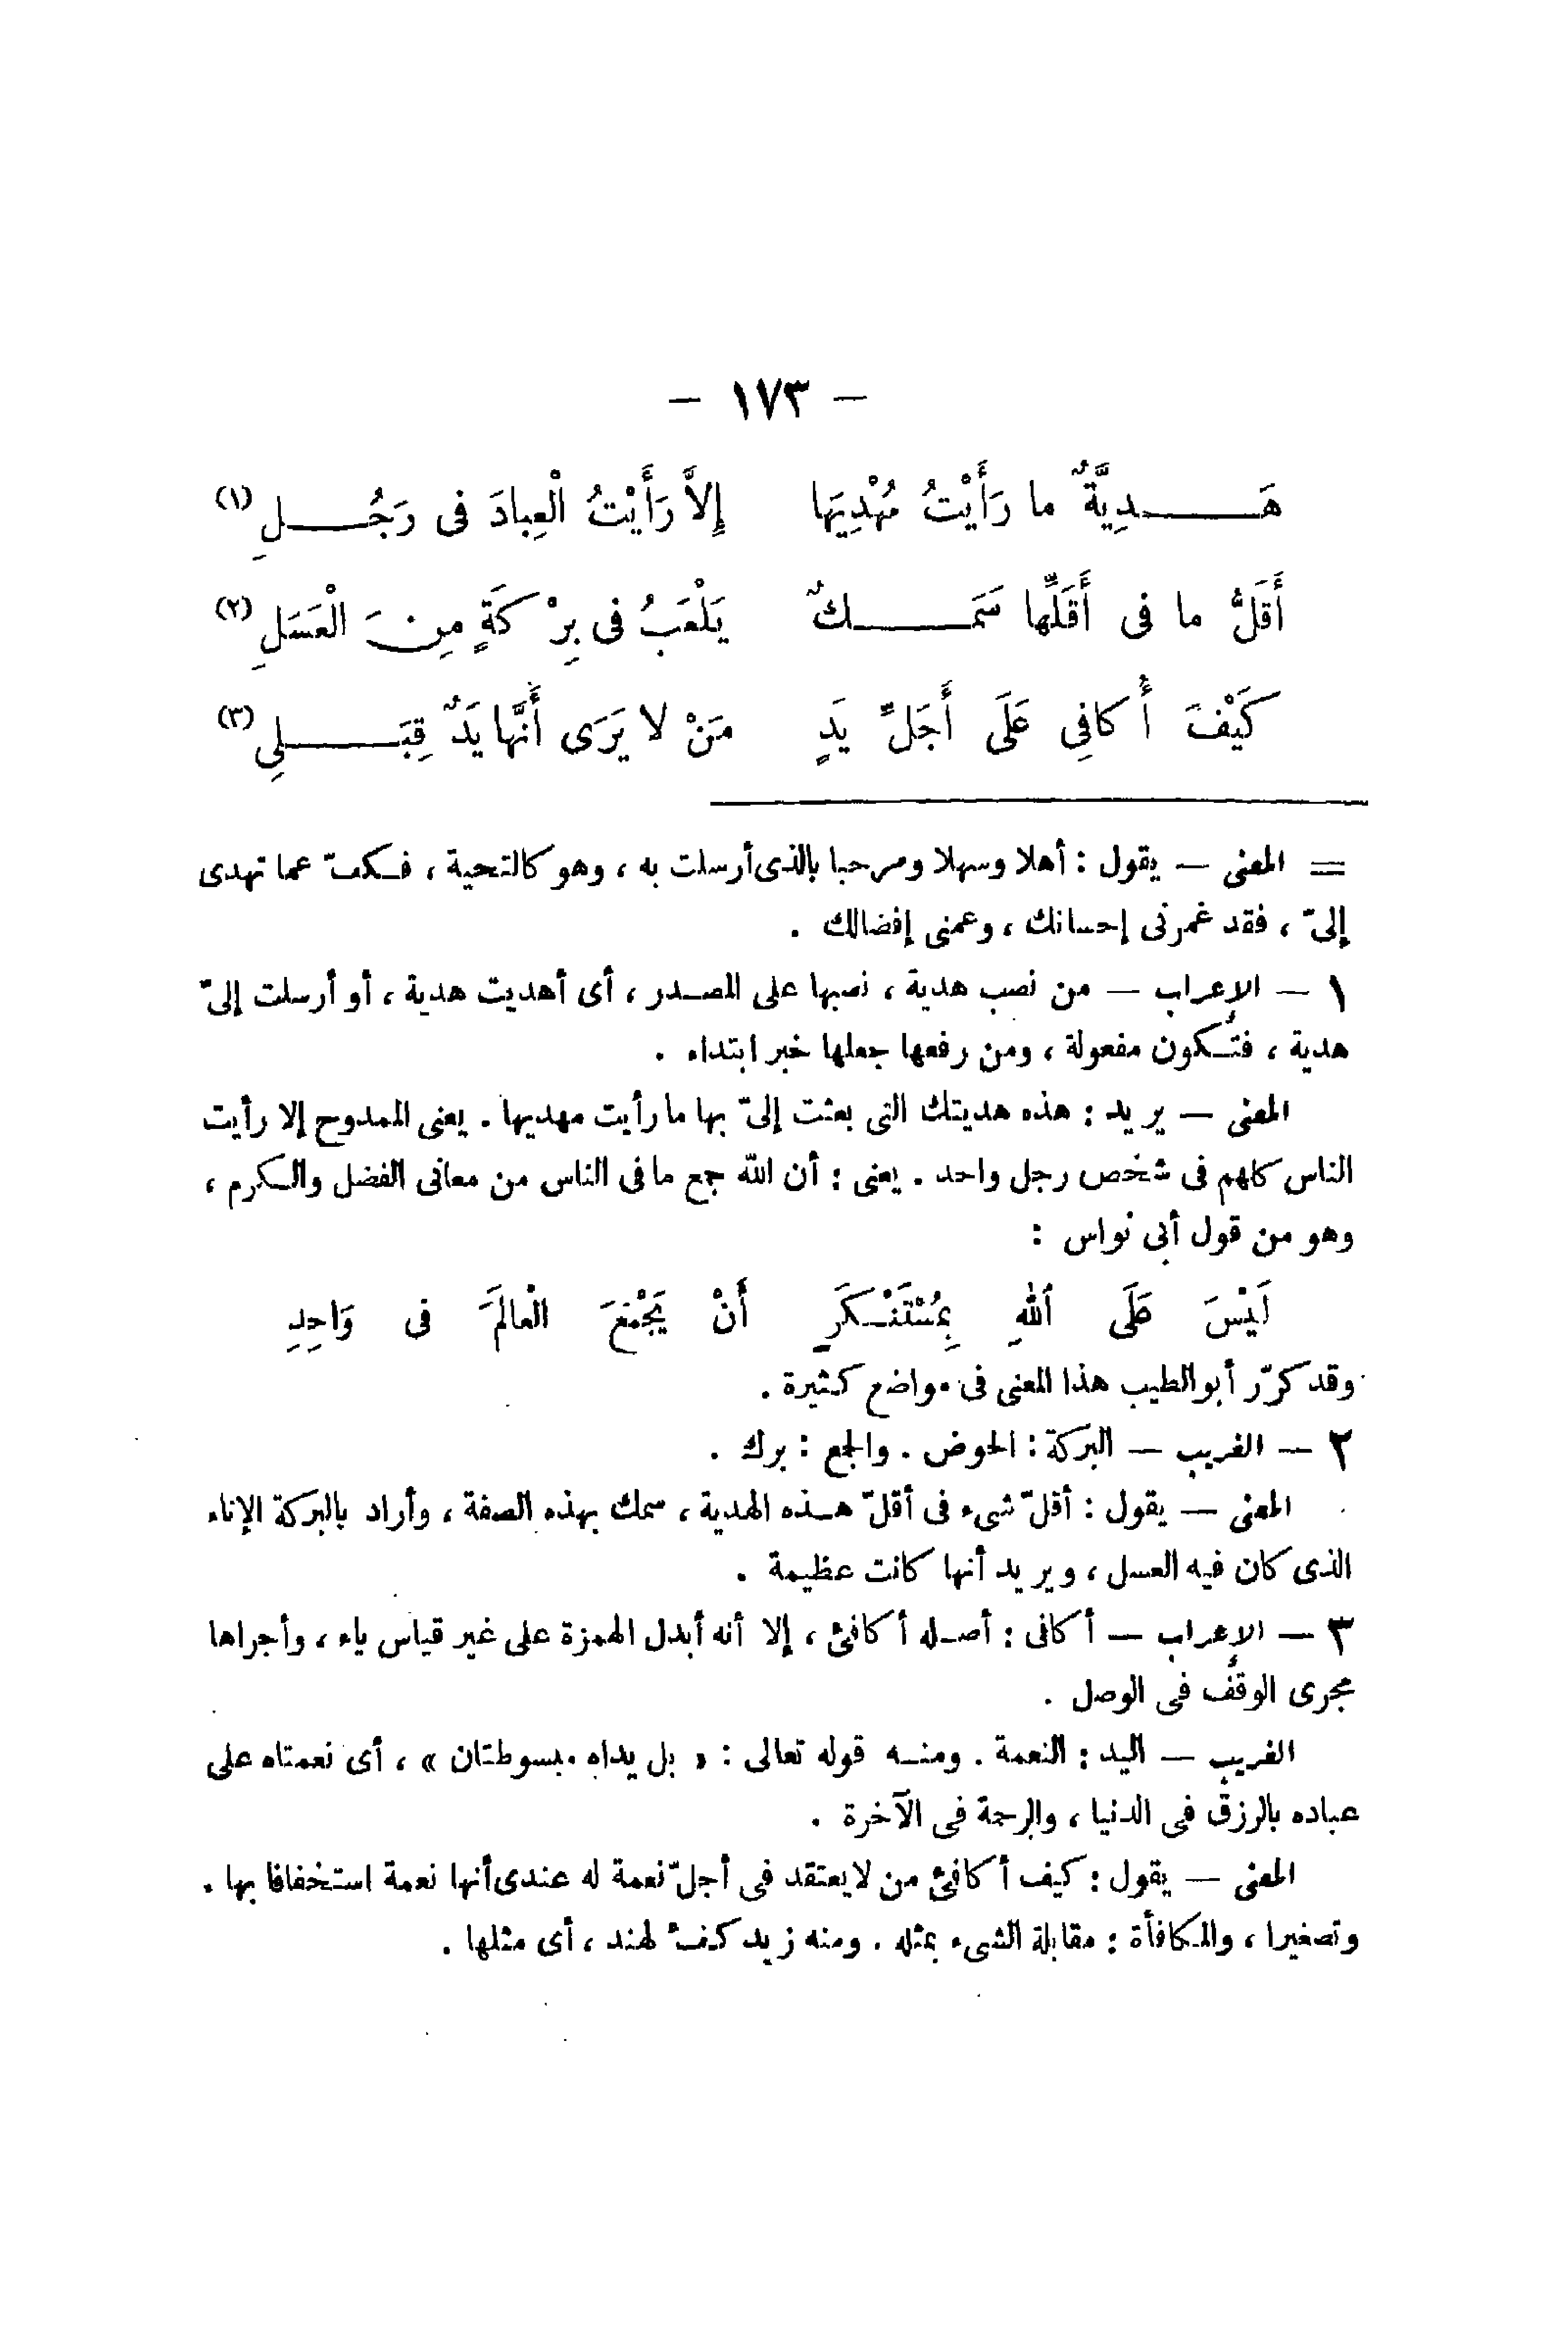 — ١٧٣ —
هَـــــدِيَّةٌ ما رَأَيْتُ مُهْدِيَها إِلاَّ رَأَيْتُ الْعِبادَ فى رَجُـــــلِ (١)
أَقَلُّ ما فى أَقَلِّها سَمَـــــكٌ يَلْعَبُ فى بِرْكَةٍ مِنَ الْعَسَلِ (٢)
كَيْفَ أُكافِى عَلَى أَجَلِّ يَدٍ مَنْ لا يَرَى أَنَّها يَدٌ قِبَـــــلِى (٣)
= المعنى — يقول : أهلا وسهلا ومرحبا بالذى أرسلت به ، وهو كالتحية ، فكفّ عما تهدى
إلىّ ، فقد غمرنى إحسانك ، وعمنى إفضالك .
١ — الإعراب — من نصب هدية ، نصبها على المصدر ، أى أهديت هدية ، أو أرسلت إلىّ
هدية ، فتكون مفعولة ، ومن رفعها جعلها خبر ابتداء .
المعنى — يريد : هذه هديتك التى بعثت إلىّ بها ما رأيت مهديها . يعنى الممدوح إلا رأيت
الناس كلهم فى شخص رجل واحد . يعنى : أن الله جمع ما فى الناس من معانى الفضل والكرم ،
وهو من قول أبى نواس :
لَيْسَ عَلَى اللهِ بِمُسْتَنْكَرٍ أَنْ يَجْمَعَ الْعالَمَ فى وَاحِدِ
وقد كرّر أبو الطيب هذا المعنى فى مواضع كثيرة .
٢ — الغريب — البركة : الحوض . والجمع : برك .
المعنى — يقول : أقلّ شىء فى أقلّ هذه الهدية ، سمك بهذه الصفة ، وأراد بالبركة الإناء
الذى كان فيه العسل ، ويريد أنها كانت عظيمة .
٣ — الإعراب — أكافى : أصله أكافئ ، إلا أنه أبدل الهمزة على غير قياس ياء ، وأجراها
مجرى الوقف فى الوصل .
الغريب — اليد : النعمة . ومنه قوله تعالى : « بل يداه مبسوطتان » ، أى نعمتاه على
عباده بالرزق فى الدنيا ، والرحمة فى الآخرة .
المعنى — يقول : كيف أكافئ من لا يعتقد فى أجلّ نعمة له عندى أنها نعمة استخفافا بها .
وتصغيرا ، والمكافأة : مقابلة الشىء بمثله . ومنه زيد كفء لهند ، أى مثلها .